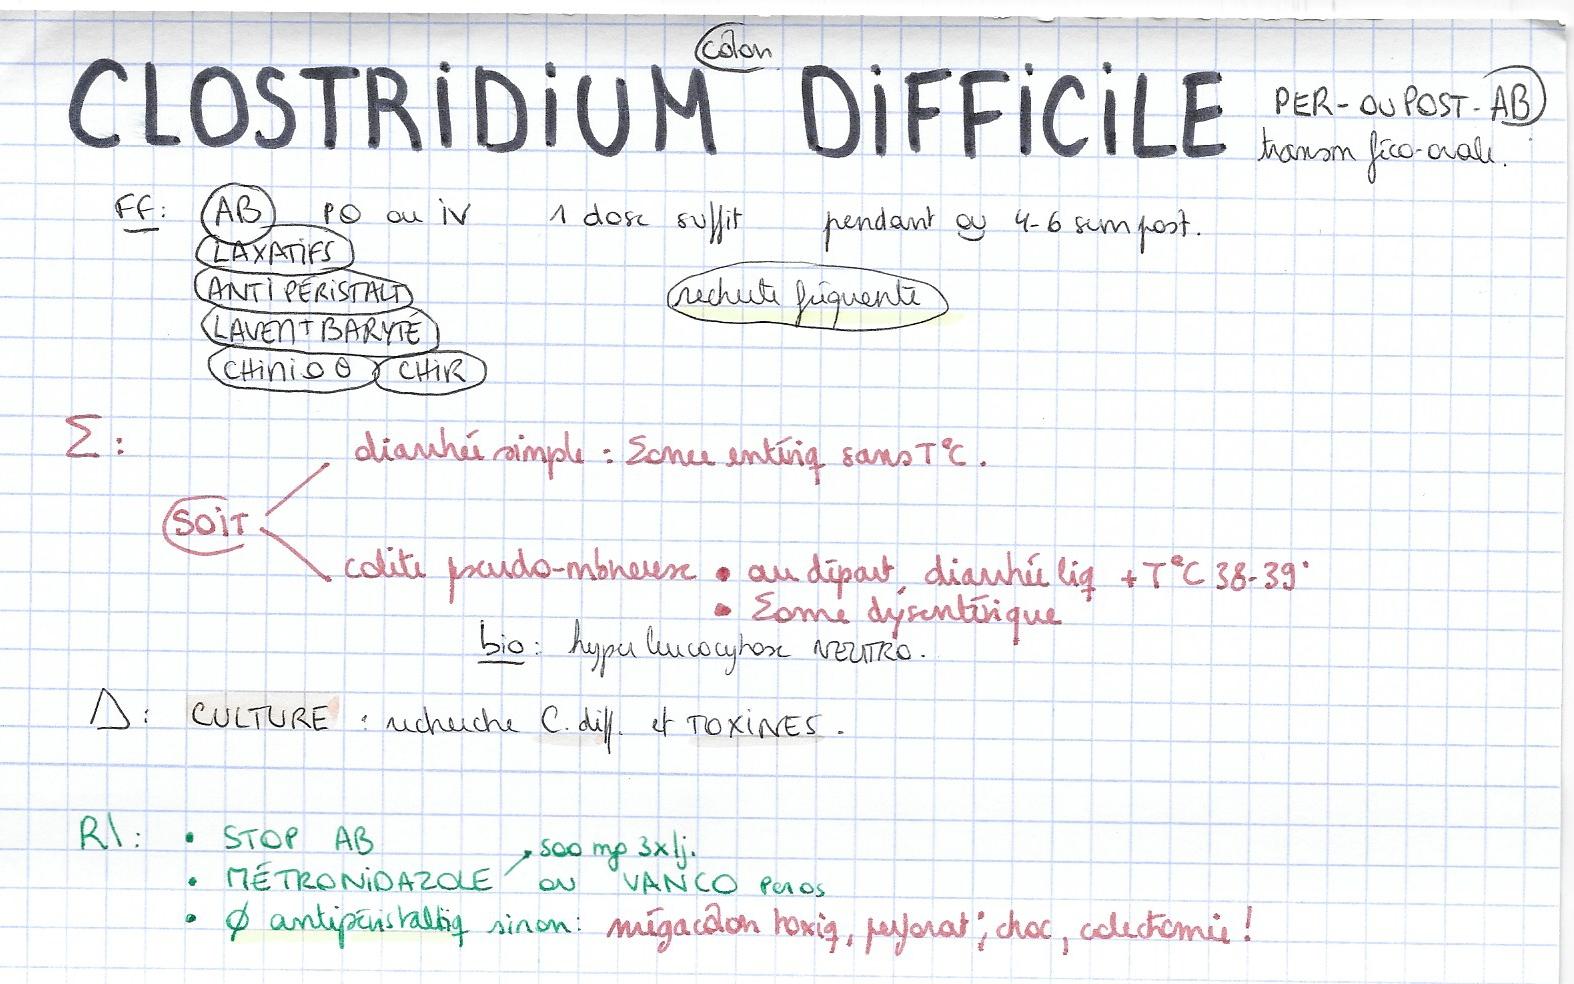 côlon
CLOSTRiDiUM DiFFiCiLE
PER- OU POST- AB
transm féco-orale.
FF: AB PO ou iV 1 dose suffit pendant ou 4-6 sem post.
LAXATiFS
ANTiPÉRiSTALT
rechute fréquente
LAVEMT BARYTÉ
CHiMiOΘ CHiR
Σ:
diarrhée simple : Σome entériq sans T°C.
SOiT
colite pseudo-mbneuse • au départ, diarrhée liq + T°C 38-39°
• Σome dysentérique
bio: hyperleucocytose NEUTRO.
Δ: CULTURE : recherche C. diff. et TOXiNES.
R\: • STOP AB
500 mg 3x/j.
• MÉTRONiDAZOLE ou VANCO Per os
• ∅ antipéristaltiq sinon: mégacôlon toxiq, perforat°, choc, colectomie !